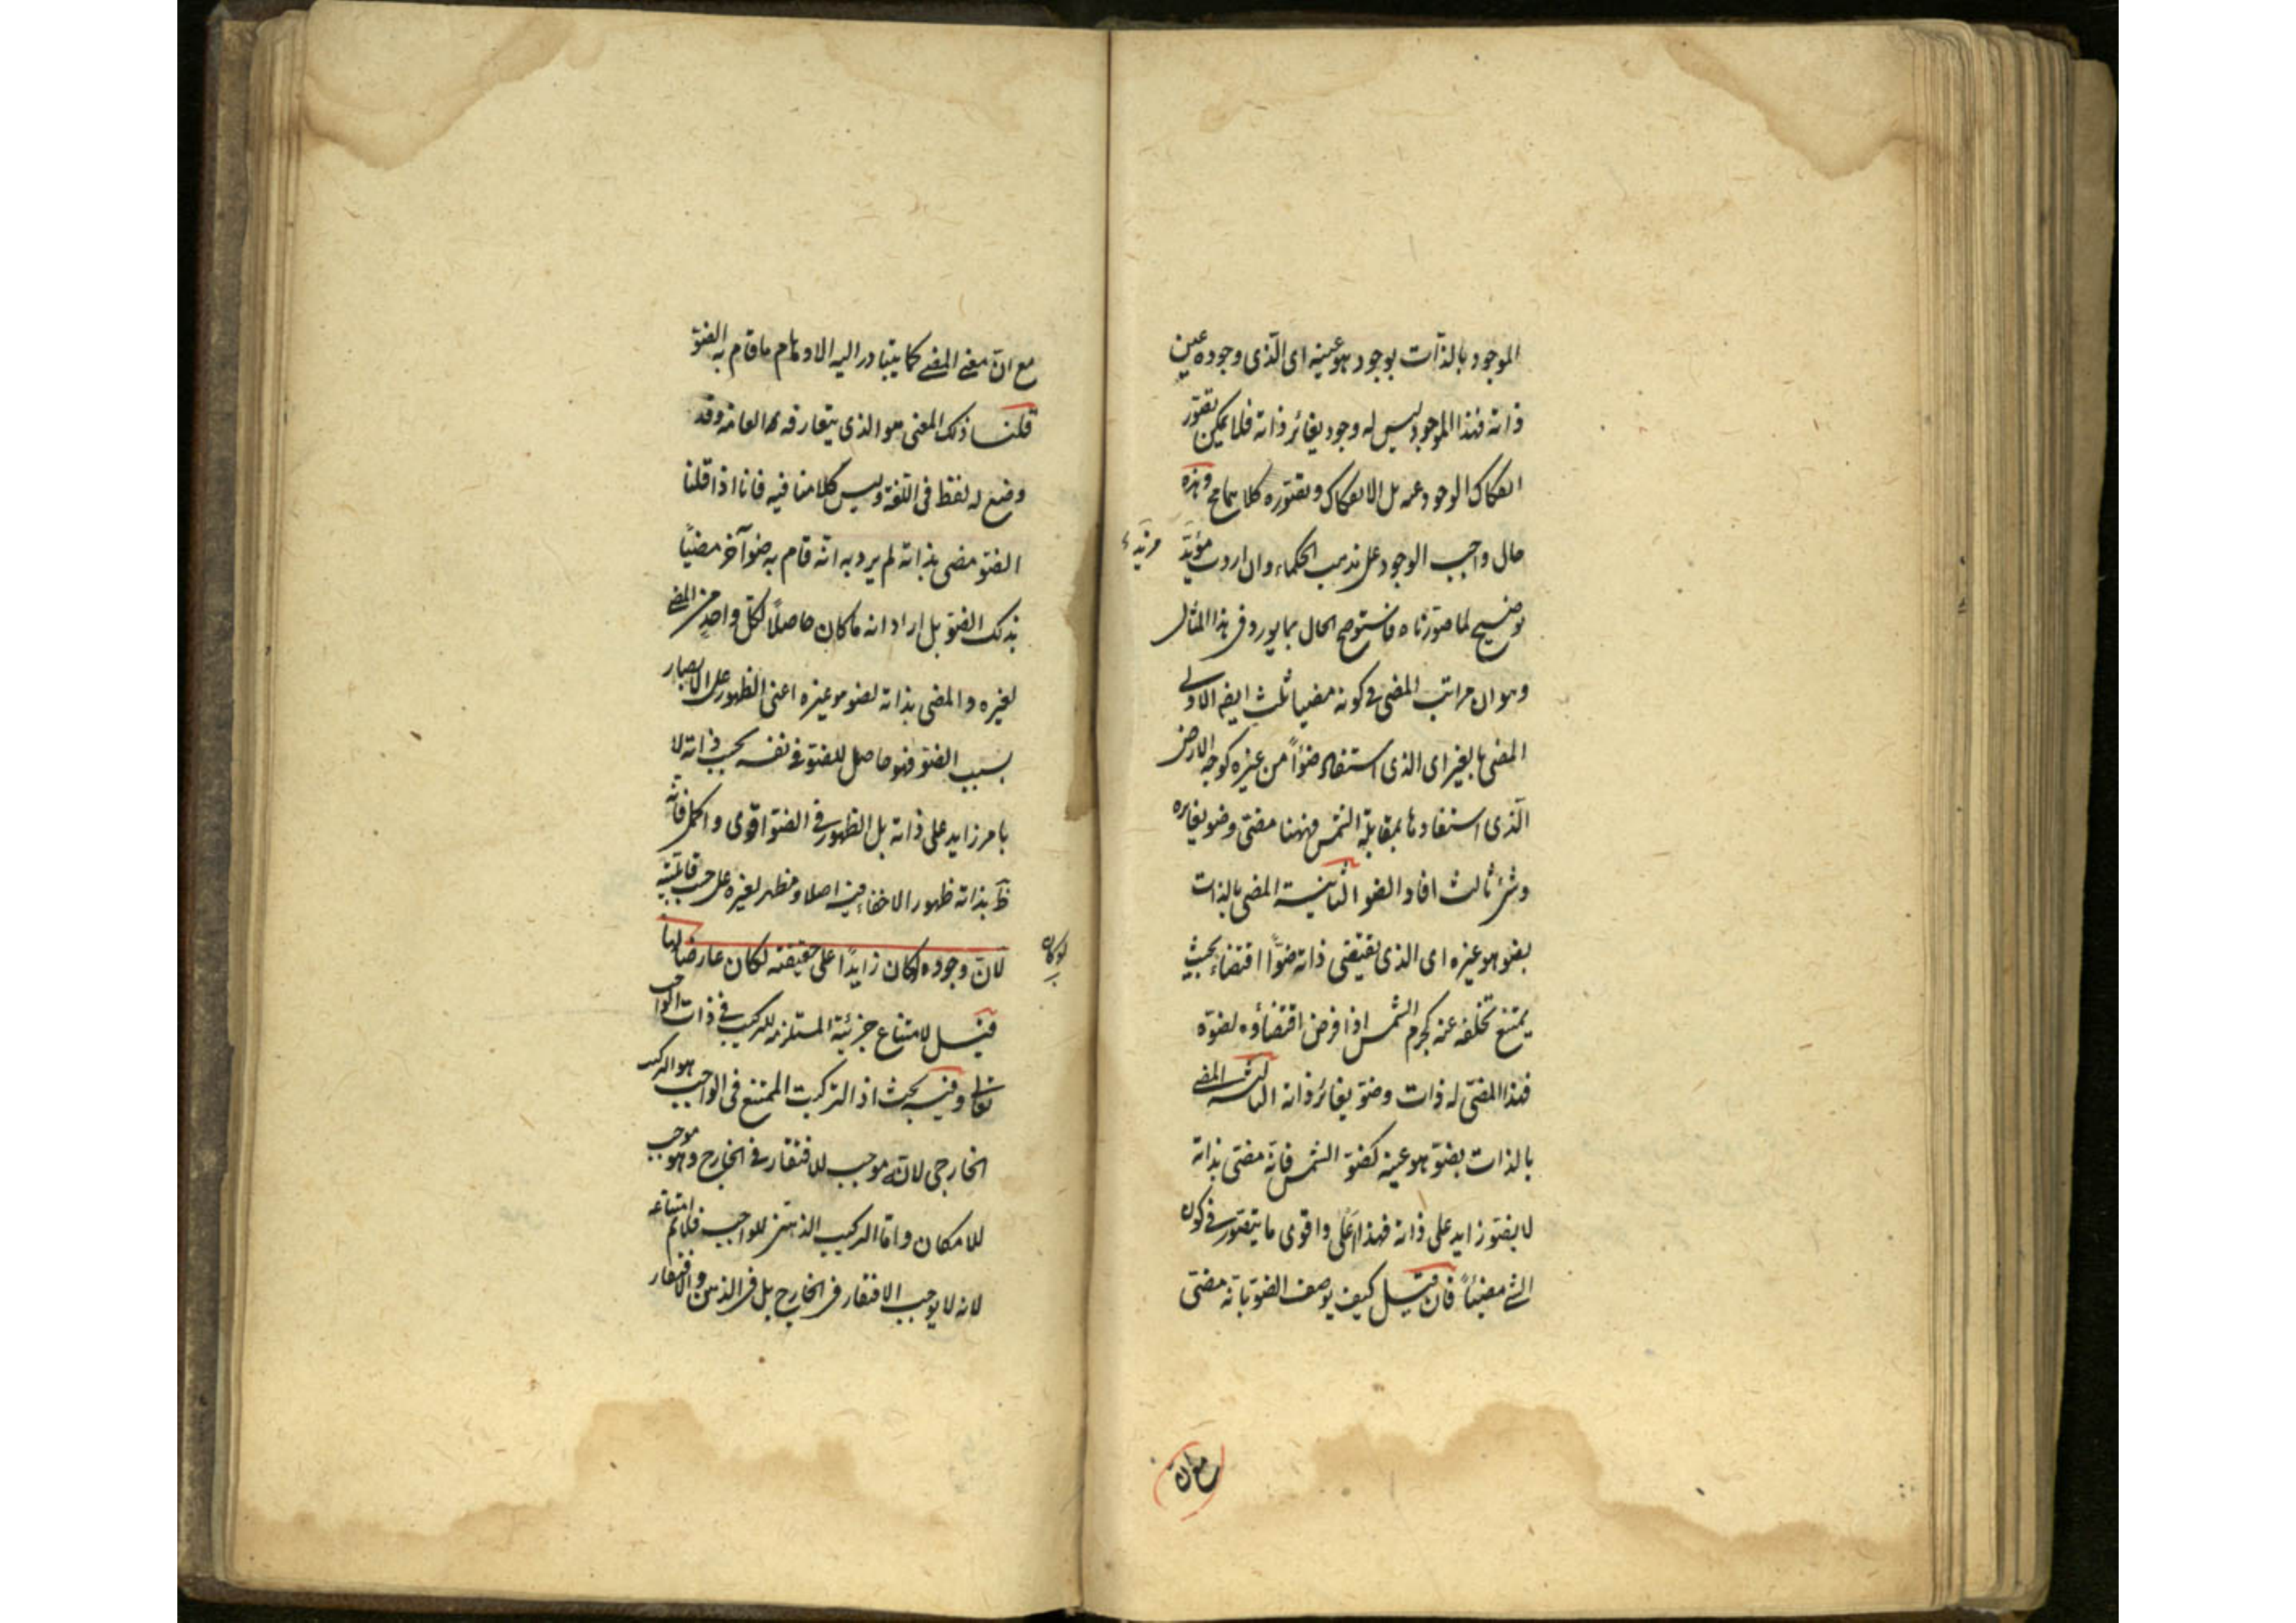 الموجود بالذات بوجود هو عينه اى الذى وجوده عين
ذاته فهذا الموجود ليس له وجود يغائر ذاته فلا يمكن تصور
انفكاك الوجود عنه بل الانفكاك وتصوره كلاهما مح وهذه
حال واجب الوجود على مذهب الحكماء وان اردت مزيد
مزيد
توضيح لما صورناه فاستوضح الحال بما يورد فى هذا المثال
وهو ان مراتب المضى فى كونه مضيا ثلث ايضا الاولى
المضى بالغير اى الذى استفاد ضوأً من غيره كوجه الارض
الذى استفاد بمقابلة الشمس فههنا مضئ وضو يغائره
وشئ ثالث افاد الضو الثانية المضى بالذات
بضو هو غيره اى الذى تقتضى ذاته ضوّا اقتضاء بحيث
يمتنع تخلفه عنه كجرم الشمس اذا فرض اقتضاؤه لضوّه
فهذا المضئ له ذات وضوّ يغائر ذاته الثالثة المضى
بالذات بضوّ هو عينه كضوّ الشمس فانه مضئ بذاته
لا بضوّ زايد على ذاته فهذا اعلى واقوى ما يتصور فى كون
الشئ مضيئاً فان قيل كيف يوصف الضوّ بانه مضئ
مع ان
مع ان معنى المضى كما يتبادر اليه الاوهام ما قام به الضوّ
قلنا ذلك المعنى هو الذى يتعارفه العامه وقد
وضع له لفظ فى اللغة وليس كلامنا فيه فانا اذا قلنا
الضوّ مضى بذاته لم يرد به انه قام به ضوء آخر مضيًا
بذلك الضوّ بل اراد انه ما كان حاصلًا لكل واحد من المضى
لغيره والمضى بذاته لضو هو غيره اعنى الظهور على الابصار
بسبب الضوّ فهو حاصل للضوّ فى نفسه بحسب ذاته لا
بامر زايد على ذاته بل الظهور فى الضوّ اقوى واكمل فانه
ظ بذاته ظهورا لا خفاء فيه اصلا ومظهر لغيره على حسب قابليته
لان وجوده لو كان زايدًا على حقيقته لكان عارضا لها
لو كان
قيل لامتناع جزئية المستلزمه للتركيب فى ذات الواجب
تعالى وفيه بحث اذ التركيب الممتنع فى الواجب هو التركيب
الخارجى لانه موجب للافتقار فى الخارج وهو موجب
للامكان واما التركيب الذهنى للواجب فلا نم امتناعه
لانه لا يوجب الافتقار فى الخارج بل فى الذهن والافتقار